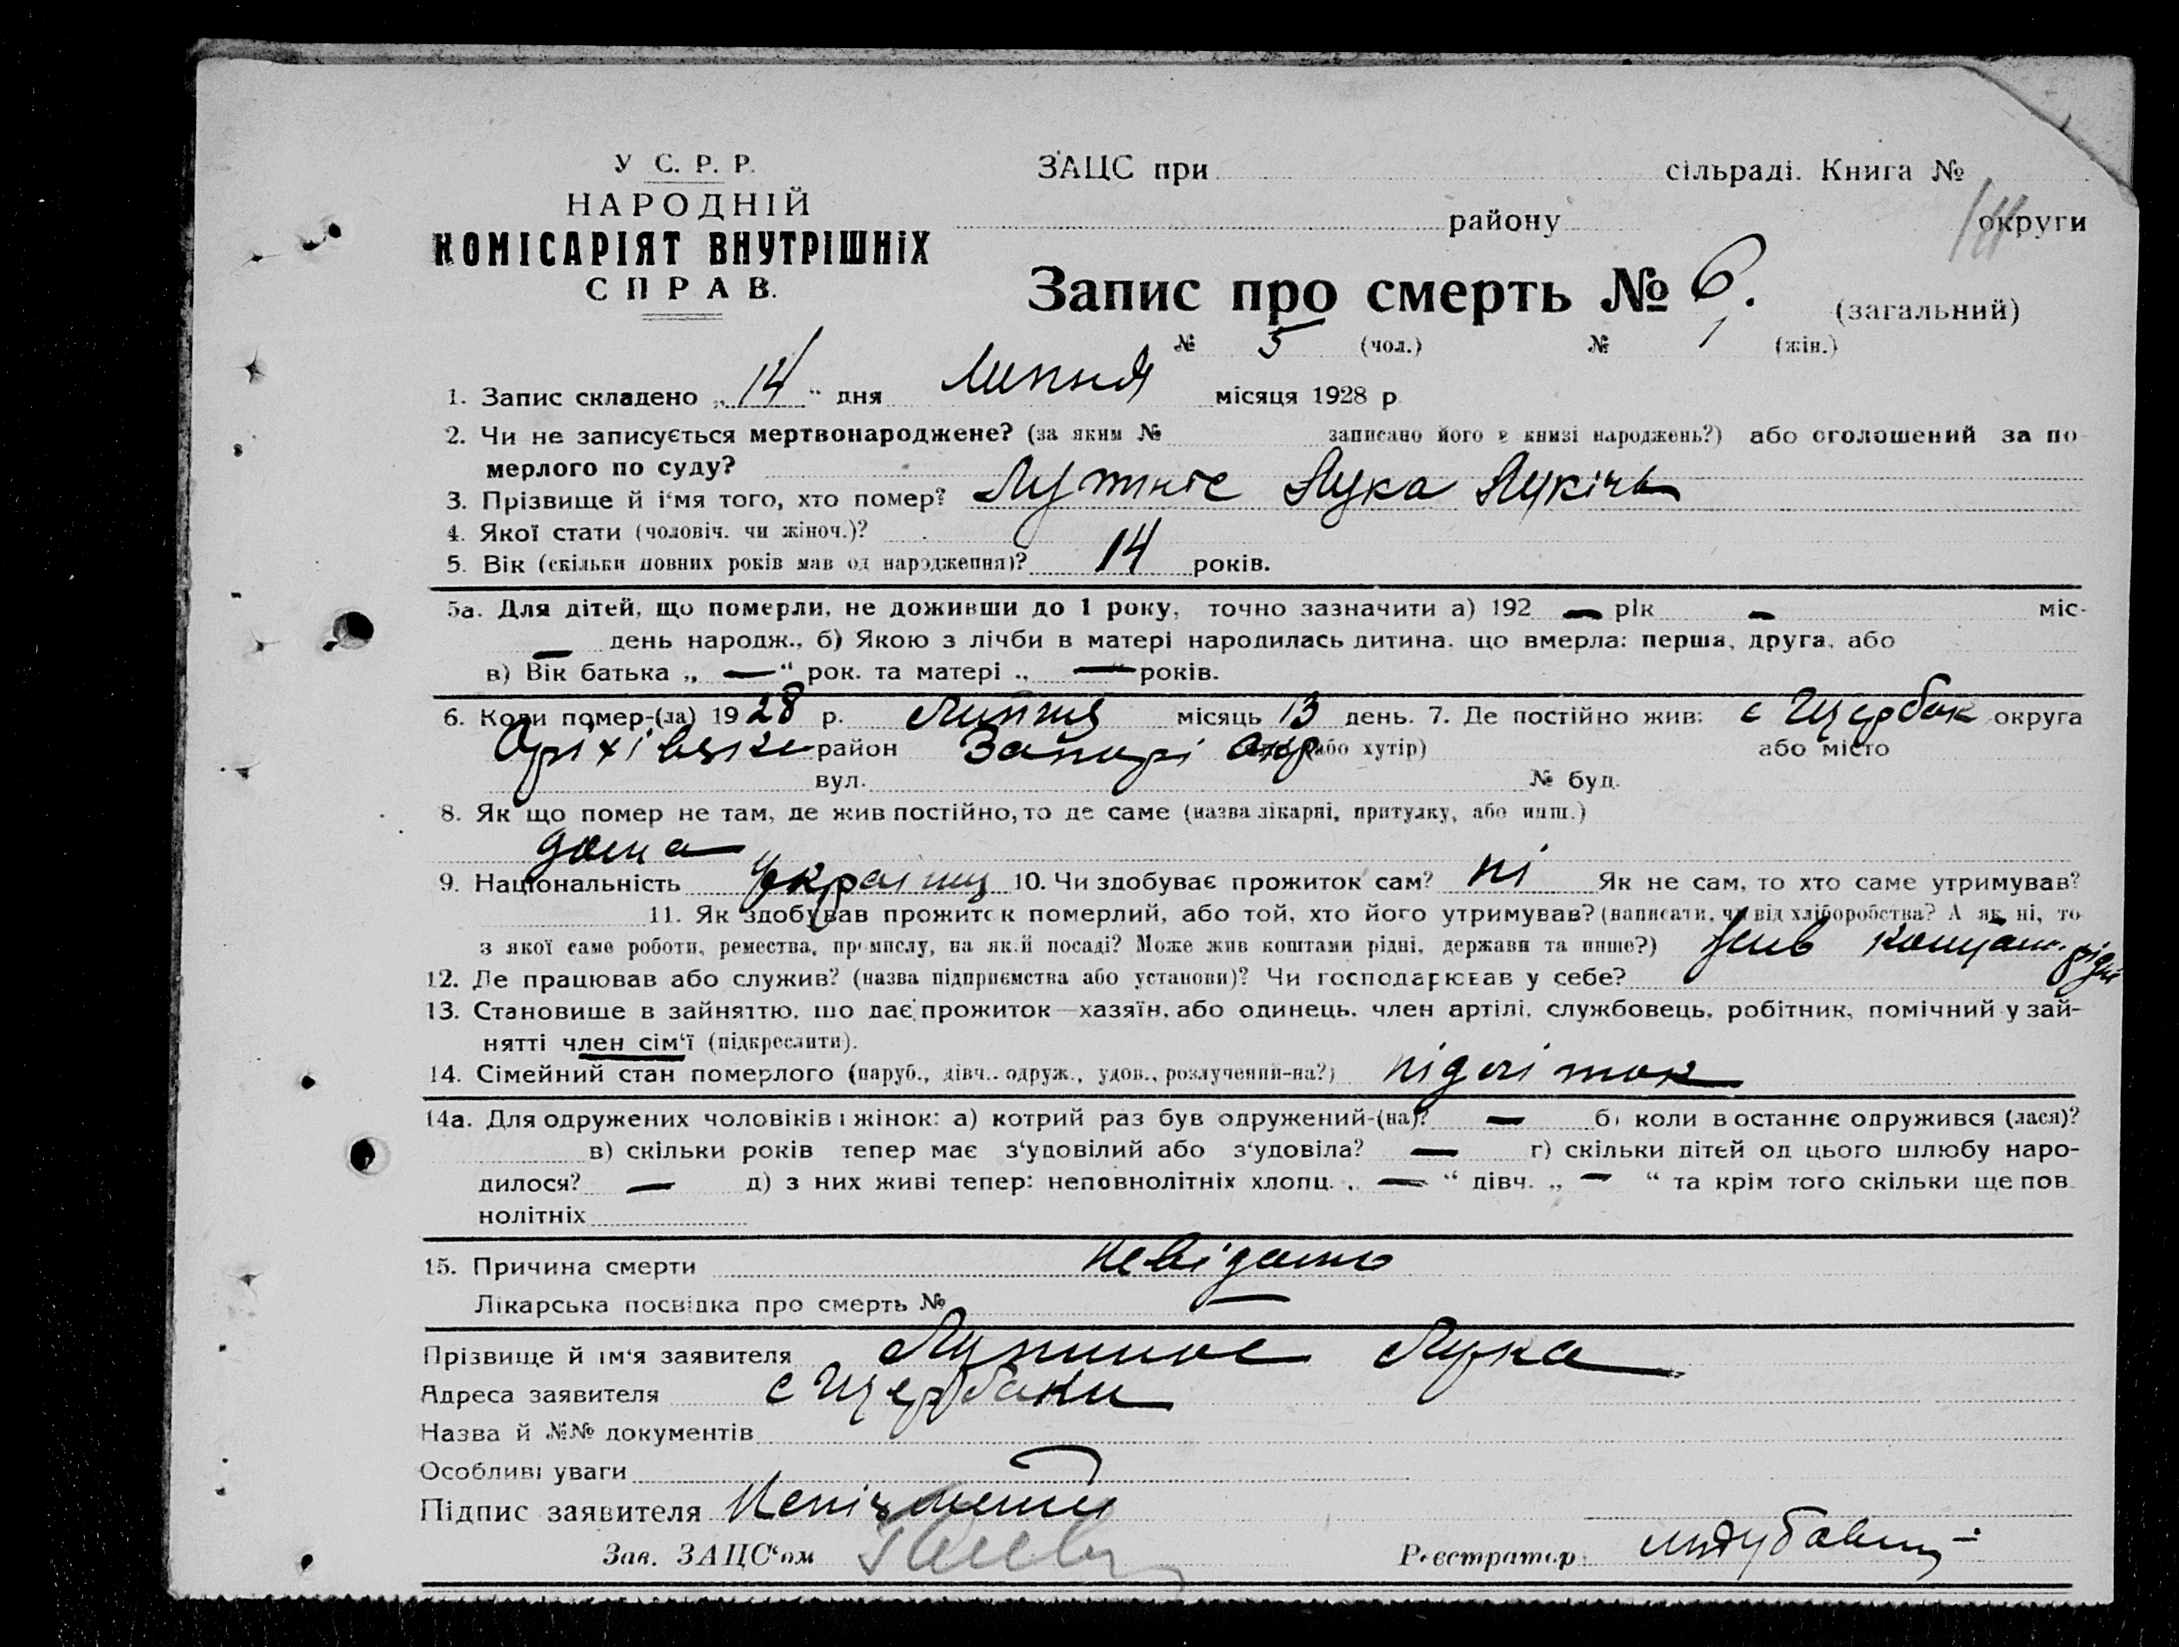 У С. Р. Р.
НАРОДНІЙ
КОМІСАРІЯТ ВНУТРІШНІХ
СПРАВ.
ЗАЦС при сільраді. Книга №
району округи
Запис про смерть № 6. (загальний)
№ 5 (чол.) № 1 (жін.)
1. Запис складено „14“ дня Липня місяця 1928 р
2. Чи не записується мертвонароджене? (за яким № записано його в книзі народжень?) або оголошений за по
мерлого по суду?
3. Прізвище й і‘мя того, хто помер? Лука Лукічь
4. Якої стати (чоловіч. чи жіноч.)?
5. Вік (скільки повних років мав од народження)? 14 років.
5а. Для дітей, що померли, не доживши до 1 року, точно зазначити а) 192 — рік — міс-
— день народж., б) Якою з лічби в матері народилась дитина, що вмерла: перша, друга, або
в) Вік батька „ — “ рок. та матері „ — “ років.
6. Коли помер-(ла) 1928 р. Липня місяць 13 день. 7. Де постійно жив: с Щербак округа
Оріхівське район Запорі окр (або хутір) або місто
вул. № буд.
8. Як що помер не там, де жив постійно, то де саме (назва лікарні, притулку, або инш.)
дома
9. Національність Україниц 10. Чи здобуває прожиток сам? ні Як не сам, то хто саме утримував?
11. Як здобував прожиток померлий, або той, хто його утримував? (написати, чи від хліборобства? А як ні, то
з якої саме роботи, ремества, промислу, на якій посаді? Може жив коштами рідні, держави та инше?) жив коштам. рідні
12. Де працював або служив? (назва підприємства або установи)? Чи господарював у себе?
13. Становище в зайняттю, що дає прожиток—хазяїн, або одинець, член артілі, службовець, робітник, помічний у зай-
нятті член сім‘ї (підкреслити).
14. Сімейний стан померлого (паруб., дівч., одруж., удов., розлучений-на?) підліток
14а. Для одружених чоловіків і жінок: а) котрий раз був одружений-(на)? — б) коли востаннє одружився (лася)?
в) скільки років тепер має з‘удовілий або з‘удовіла? — г) скільки дітей од цього шлюбу наро-
дилося? — д) з них живі тепер: неповнолітніх хлопц. „ — “ дівч. „ — “ та крім того скільки ще пов
нолітніх
15. Причина смерти невідомо
Лікарська посвідка про смерть № —
Прізвище й ім‘я заявителя Лука
Адреса заявителя с Щербаки
Назва й №№ документів
Особливі уваги
Підпис заявителя
Зав. ЗАЦС‘ом Реєстратор